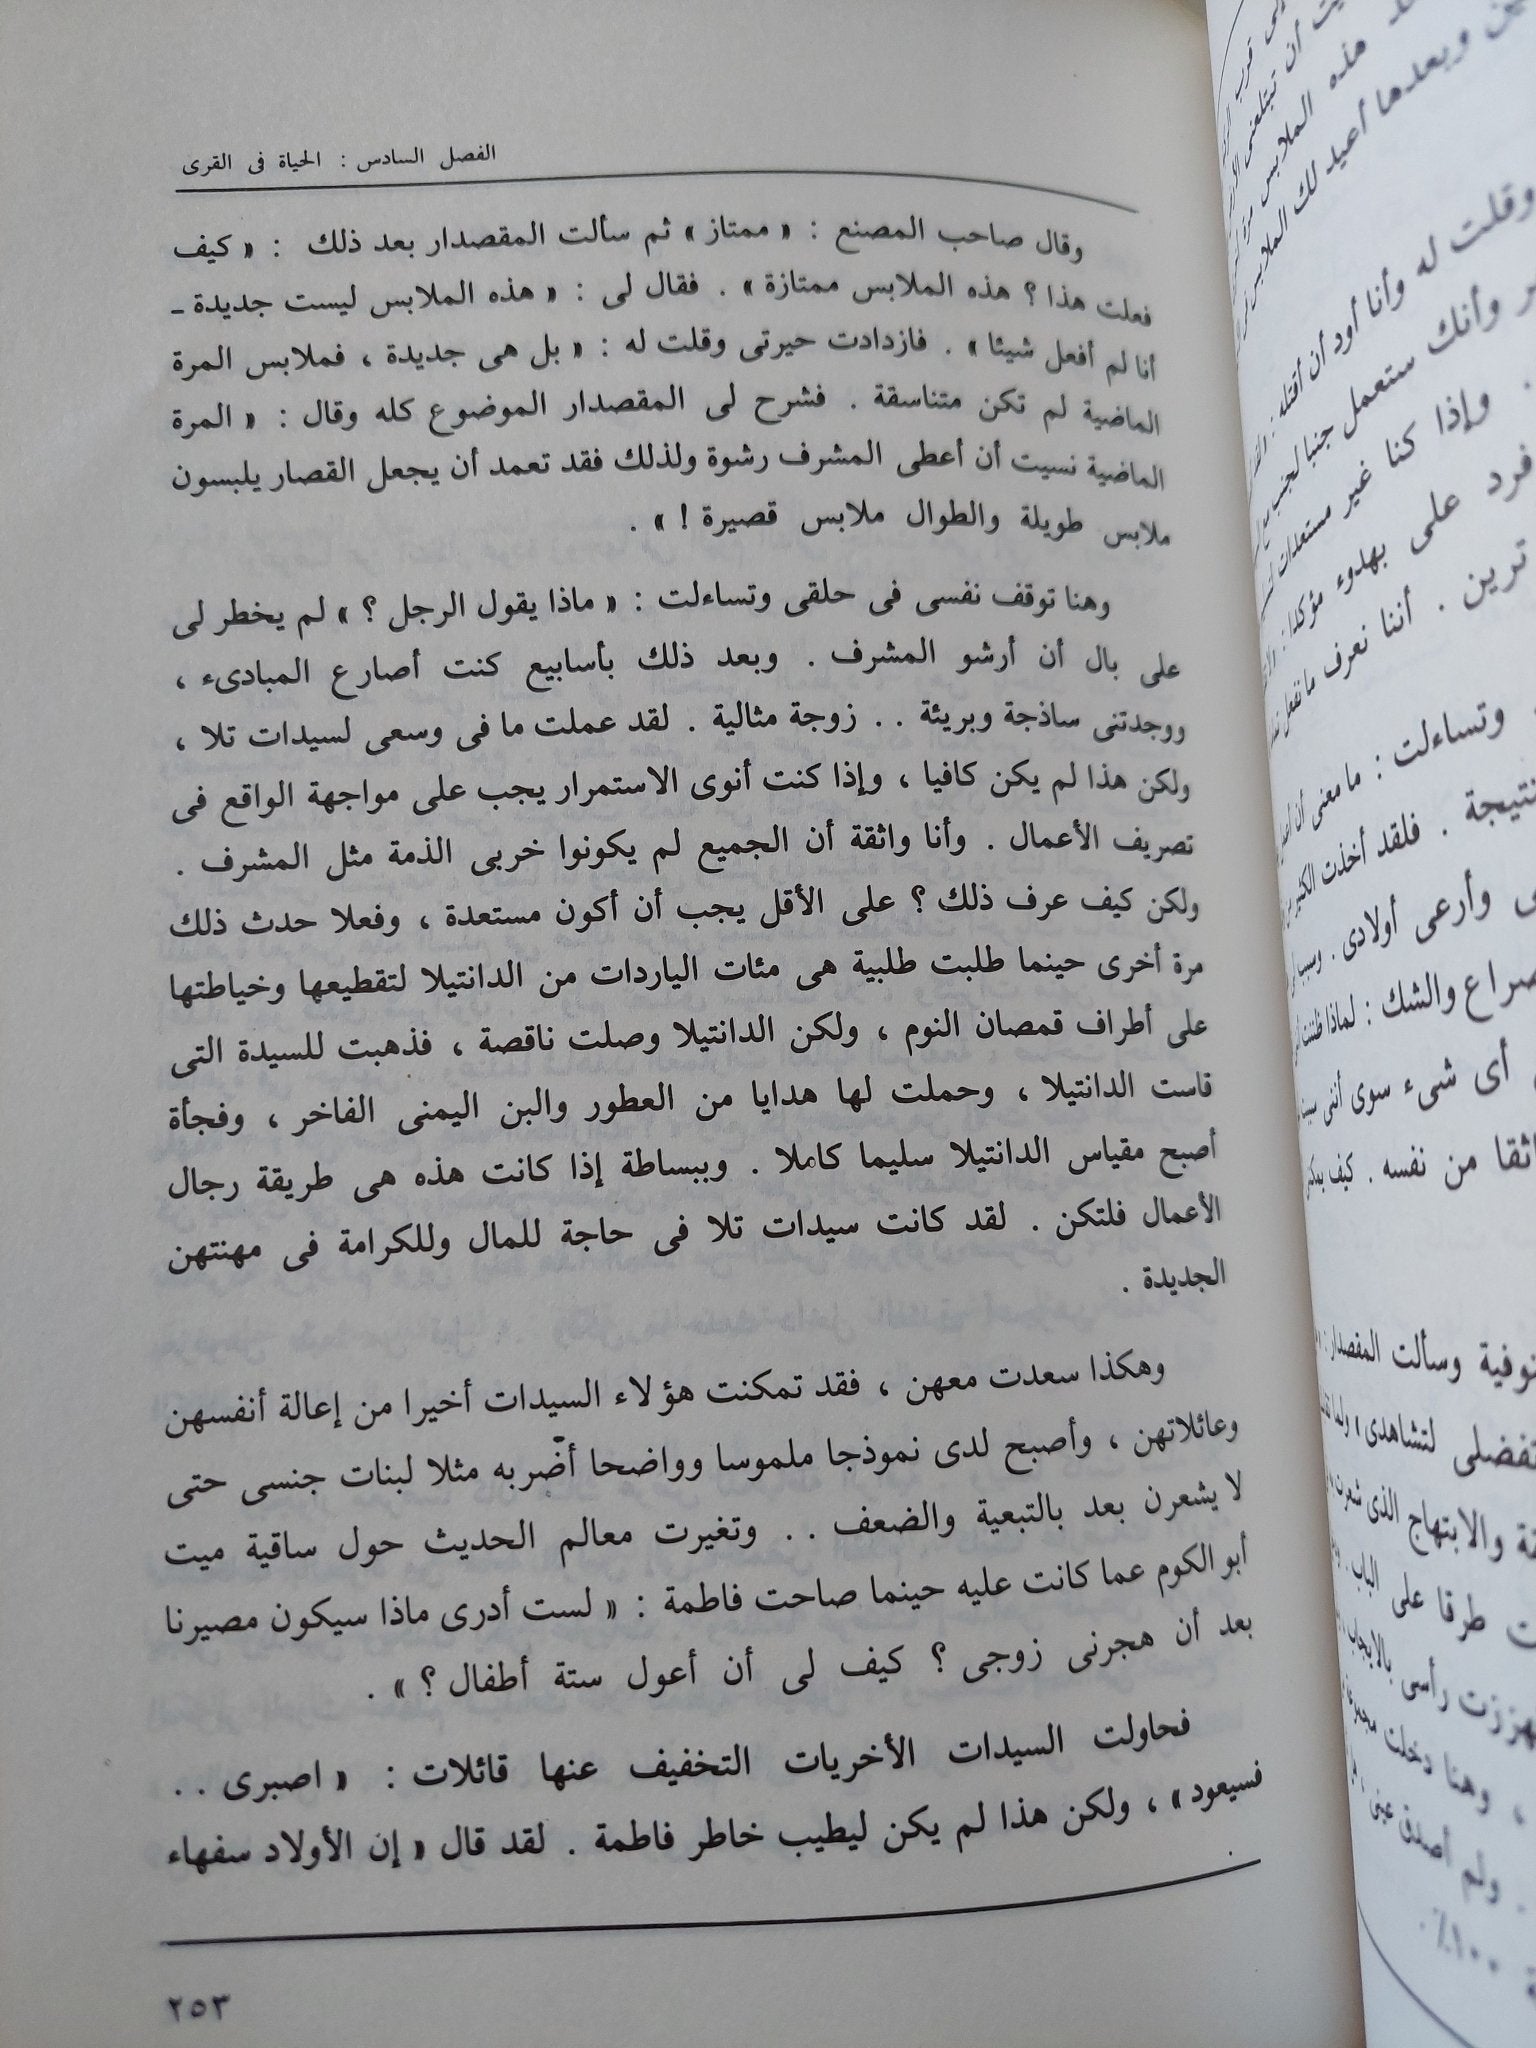 الفصل السادس : الحياة فى القرى
وقال صاحب المصنع : « ممتاز » ثم سألت المقصدار بعد ذلك : « كيف
فعلت هذا ؟ هذه الملابس ممتازة » . فقال لى : « هذه الملابس ليست جديدة ـ
أنا لم أفعل شيئا » . فازدادت حيرتى وقلت له : « بل هى جديدة ، فملابس المرة
الماضية لم تكن متناسقة . فشرح لى المقصدار الموضوع كله وقال : « المرة
الماضية نسيت أن أعطى المشرف رشوة ولذلك فقد تعمد أن يجعل القصار يلبسون
ملابس طويلة والطوال ملابس قصيرة ! » .
وهنا توقف نفسى فى حلقى وتساءلت : « ماذا يقول الرجل ؟ » لم يخطر لى
على بال أن أرشو المشرف . وبعد ذلك بأسابيع كنت أصارع المبادىء ،
ووجدتنى ساذجة وبريئة . . زوجة مثالية . لقد عملت ما فى وسعى لسيدات تلا ،
ولكن هذا لم يكن كافيا ، وإذا كنت أنوى الاستمرار يجب على مواجهة الواقع فى
تصريف الأعمال . وأنا واثقة أن الجميع لم يكونوا خربى الذمة مثل المشرف .
ولكن كيف عرف ذلك ؟ على الأقل يجب أن أكون مستعدة ، وفعلا حدث ذلك
مرة أخرى حينما طلبت طلبية هى مئات الياردات من الدانتيلا لتقطيعها وخياطتها
على أطراف قمصان النوم ، ولكن الدانتيلا وصلت ناقصة ، فذهبت للسيدة التى
قاست الدانتيلا ، وحملت لها هدايا من العطور والبن اليمنى الفاخر ، وفجأة
أصبح مقياس الدانتيلا سليما كاملا . وببساطة إذا كانت هذه هى طريقة رجال
الأعمال فلتكن . لقد كانت سيدات تلا فى حاجة للمال وللكرامة فى مهنتهن
الجديدة .
وهكذا سعدت معهن ، فقد تمكنت هؤلاء السيدات أخيرا من إعالة أنفسهن
وعائلاتهن ، وأصبح لدى نموذجا ملموسا وواضحا أضربه مثلا لبنات جنسى حتى
لا يشعرن بعد بالتبعية والضعف . . وتغيرت معالم الحديث حول ساقية ميت
أبو الكوم عما كانت عليه حينما صاحت فاطمة : « لست أدرى ماذا سيكون مصيرنا
بعد أن هجرنى زوجى ؟ كيف لى أن أعول ستة أطفال ؟ » .
فحاولت السيدات الأخريات التخفيف عنها قائلات : « اصبرى . .
فسيعود » ، ولكن هذا لم يكن ليطيب خاطر فاطمة . لقد قال « إن الأولاد سفهاء
٢٥٣
وبعدها أعيد لك الملابس
وقلت له وأنا أود أن أقتله :
وأنك ستعمل جنبا لجنب
وإذا كنا غير مستعدات
فرد على بهدوء مؤكدا :
ترين . أننا نعرف ما نفعل
وتساءلت : ما معنى أن
نتيجة . فلقد أخذت الكثير
وأرعى أولادى .
والشك : لماذا ظننت
أى شىء سوى أننى
من نفسه . كيف يمكن
وسألت المقصدار :
لتشاهدى »
والابتهاج الذى شعرت
طرقا على الباب .
رأسى بالايجاب
، وهنا دخلت
. ولم أصدق عينى
١٠٠٪ .